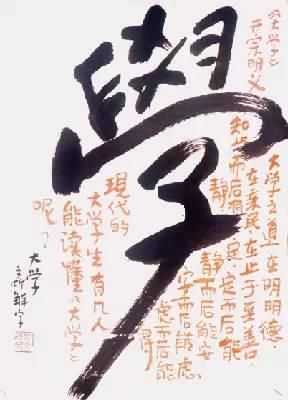 學
《大学》
开宗明义
大学之道 在明明德.
在亲民 在止于至善.
知止而后有定 定而后能
静 静而后能安
安而后能虑
虑而后能得
現代的
大学生有几人
能读懂《大学》
呢？
大学
新解字